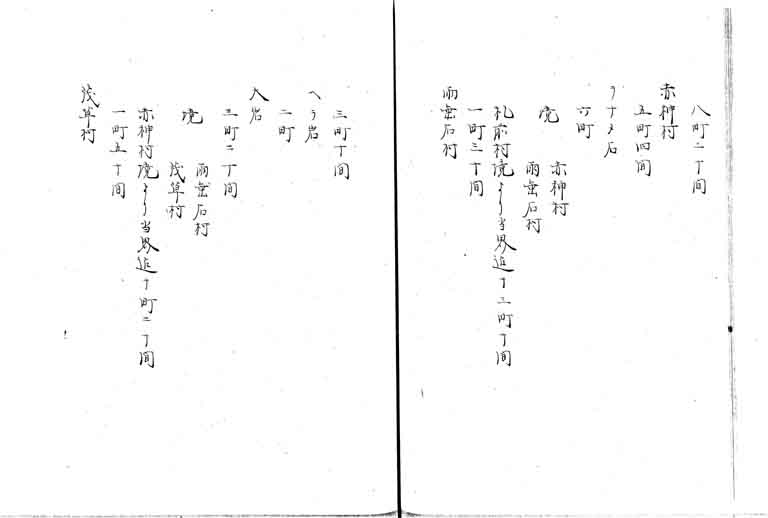 八町二丁間
赤神村
五町四間
リナメ石
六町
境 赤神村
雨垂石村
札前村境より当界迄十二町丁間
一町三十間
雨垂石村
三町丁間
へう岩
二町
大岩
三町二丁間
境 雨垂石村
茂草村
赤神村境より当界迄十町二丁間
一町五十間
茂草村